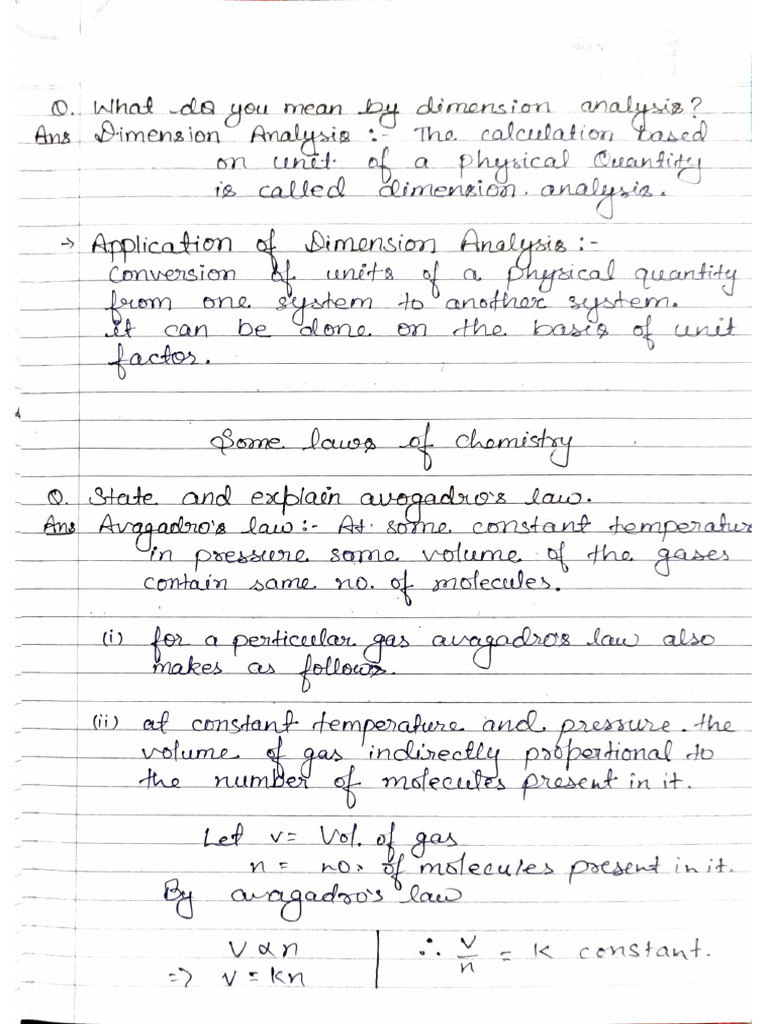 Q. What do you mean by dimension analysis?
Ans Dimension Analysis :- The calculation based
on unit of a physical Quantity
is called dimension analysis.
→ Application of Dimension Analysis :-
Conversion of units of a physical quantity
from one system to another system.
It can be done on the basis of unit
factor.
Some laws of chemistry
Q. State and explain avogadro's law.
Ans Avagadro's law :- At some constant temperatur
in pressure some volume of the gases
contain same no. of molecules.
(i) for a perticular gas avagadro's law also
makes as follows.
(ii) at constant temperature and pressure. the
volume of gas indirectly propertional to
the number of molecules present in it.
Let v = Vol. of gas
n = no. of molecules present in it.
By avagadro's law
V ∝ n | ∴ V/n = K constant.
=> V = Kn